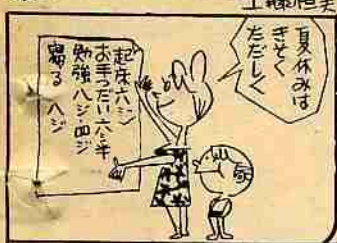 夏休みは
きそく
ただしく
起床六ジ
お手つだい六ジ半
勉強八ジ四ジ
寝る 八ジ